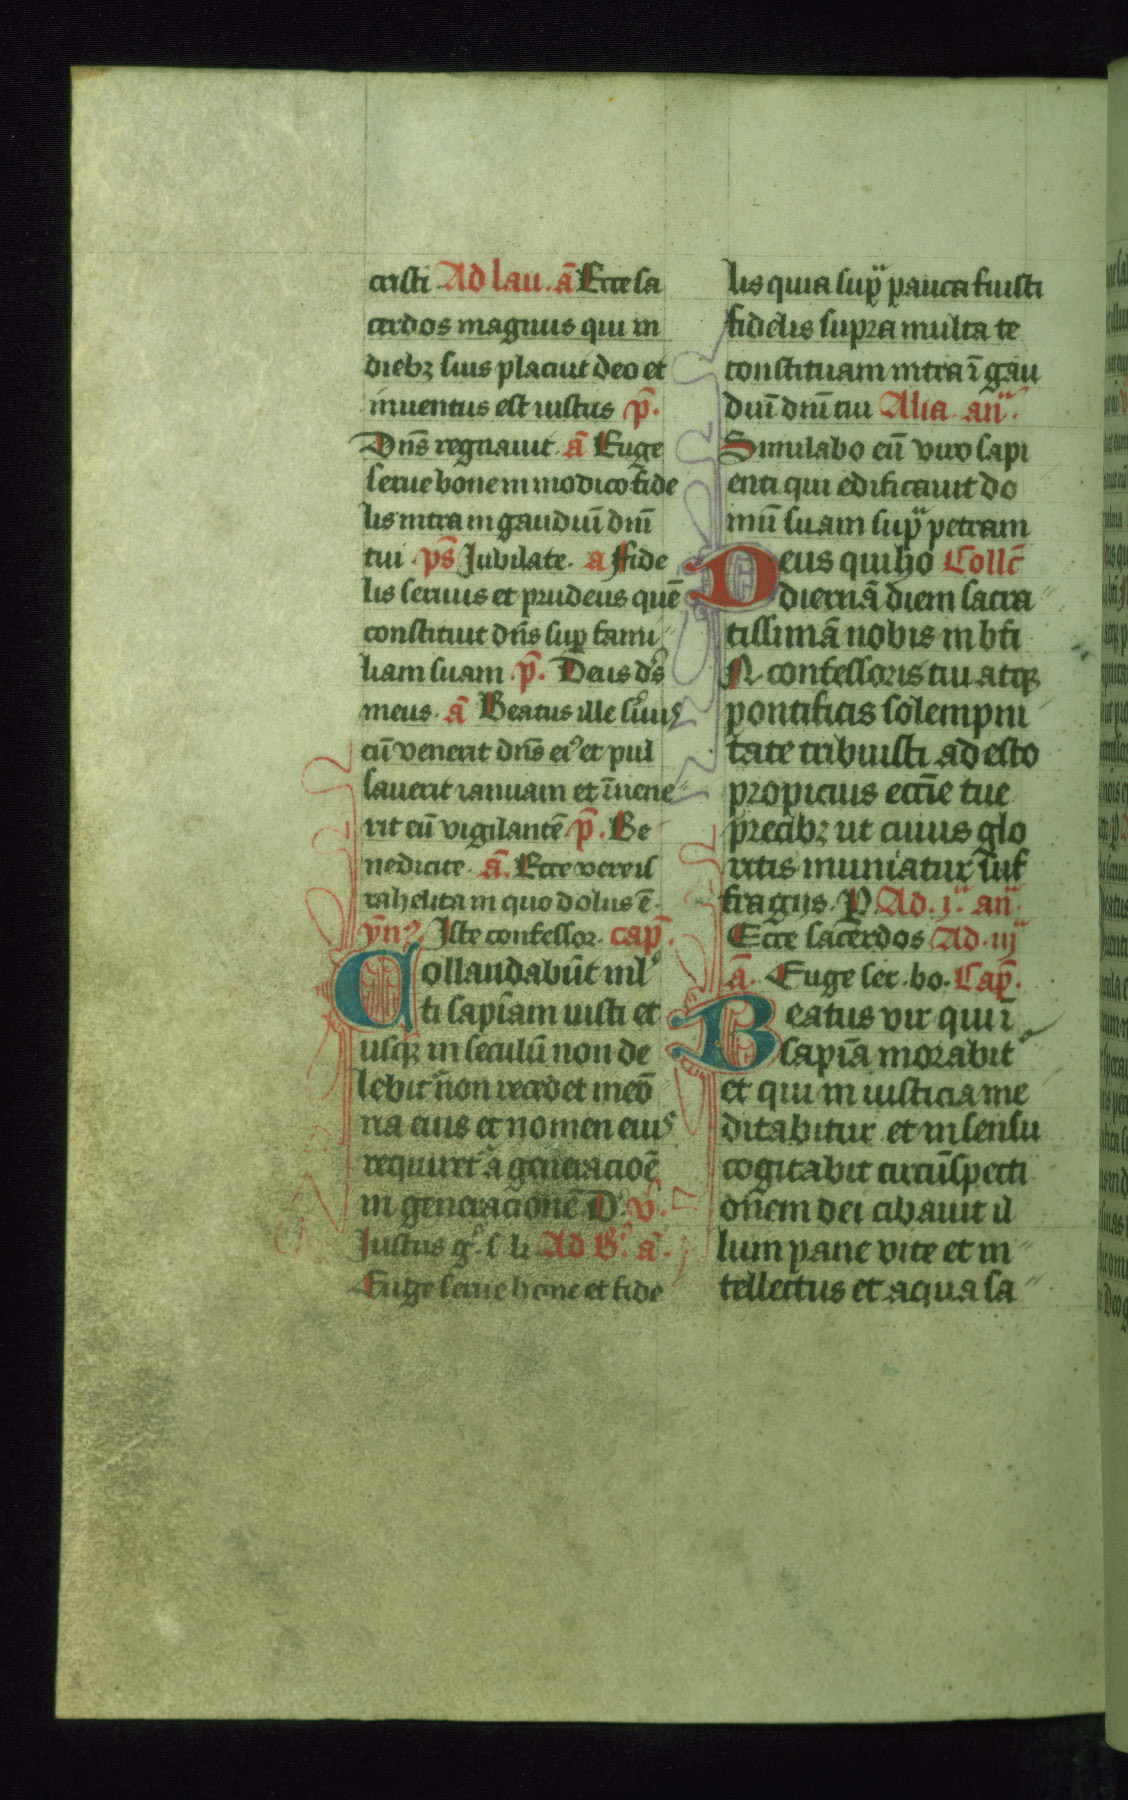 cristi Ad lau. ā Ecce sa
cerdos magnus qui in
diebꝫ suis placuit deo et
inuentus est iustus p̄.
Dn̄s regnauit. ā Euge
serue bone in modico fide
lis intra in gaudiū dn̄i
tui ps̄ Jubilate. a Fide
lis seruus et prudens quē
constituit dn̄s suꝑ fami
liam suam. p̄. Deus ds̄
meus. ā Beatus ille s̄uus
cū venerit dn̄s ei᷒ et pul
sauerit ianuam et īuene
rit eū vigilantē. p̄. Be
nedicite. ā. Ecce vere is
rahelita in quo dolus ē.
ẏn᷒. Iste confessor. cap̄.
Collaudabūt ml᷒
ti sapīam iusti et
usqꝫ in seculū non de
lebit᷑ non recedet meō
ria eius et nomen eius
requiret᷑ a generacioē
in generacionē D᷒. v᷒.
Justus g᷒. s. li. Ad B᷒. ā.
Euge serue bone et fide
lis quia suꝑ pauca fuisti
fidelis supra multa te
constituam intra ī gau
diū dn̄i tui Alia. an̄.
Similabo eū viro sapi
enti qui edificauit do
mū suam suꝑ petram
Deus qui ho Collc̄
diernā diem sacra
tissimā nobis in bt̄i
N. confessoris tui atqꝫ
pontificis solempni
tate tribuisti ad esto
propicius eccīe tue
precibꝫ ut cuius glo
riatis muniatur suf
fragijs. P. Ad. j. an̄.
Ecce sacerdos Ad. iij
ā. Euge ser. bo. Cap̄.
Beatus vir qui ī
sapīa morabit᷑
et qui in iusticia me
ditabitur et in sensu
cogitabit circūspecti
onem dei cibauit il
lum pane vite et in
tellectus et aqua sa